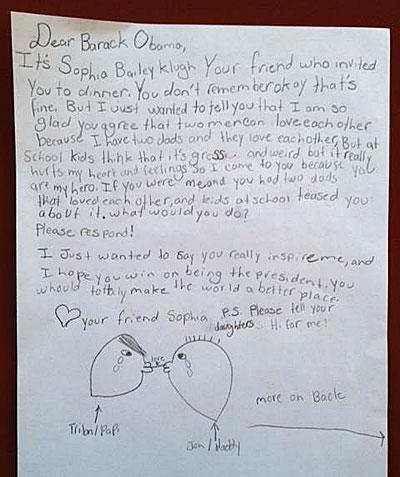 Dear Barack Obama,
It's Sophia Bailey Klugh Your friend who invited
You to dinner. You don't remember okay that's
fine. But I just wanted to tell you that I am so
glad you agree that two men can love each other
because I have two dads and they love each other. But at
School kids think that it's gross and weird but it really
hurts my heart and feelings So I come to you because you
are my hero. If you were me and you had two dads
that loved each other, and kids at school teased you
about it. what would you do?
Please respond!
I Just wanted to say you really inspire me, and
I hope you win on being the president. you
whould totaly make the world a better place.
your friend Sophia P.S. Please tell your
daughters Hi for me!
love
more on Back
Triton/PaPi
Jon/Daddy